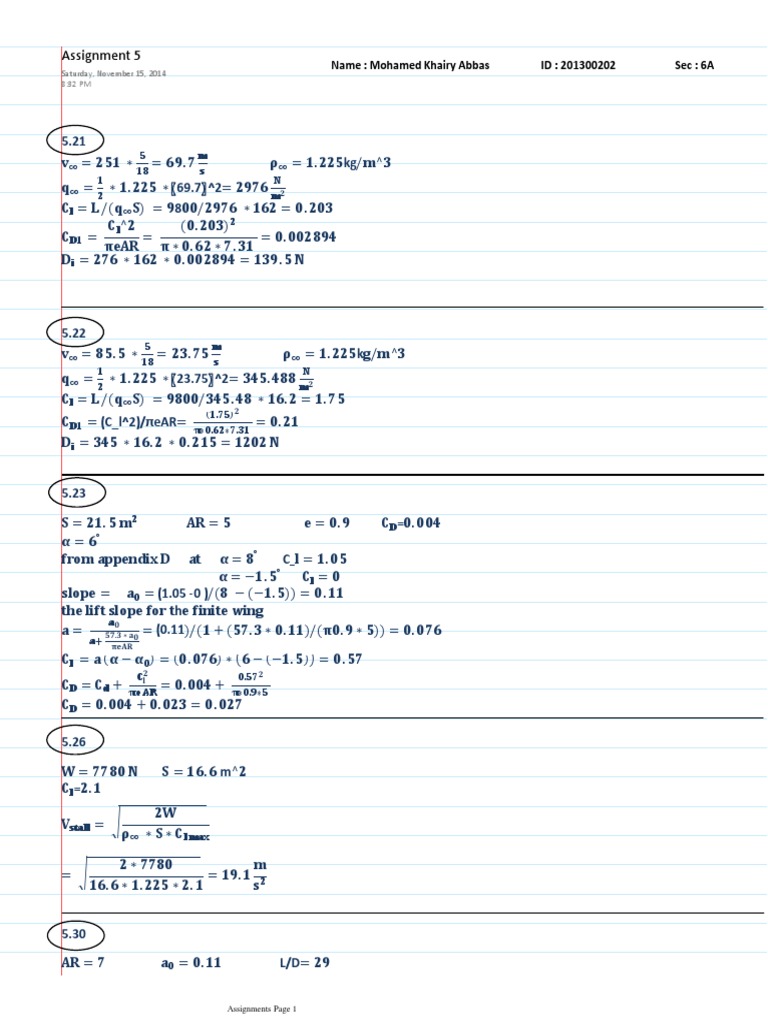 Assignment 5
Saturday, November 15, 2014
3:32 PM
Name : Mohamed Khairy Abbas ID : 201300202 Sec : 6A
5.21
v∞ = 251 * 5/18 = 69.7 m/s ρ∞ = 1.225kg/m^3
q∞ = 1/2 * 1.225 *〖69.7〗^2= 2976 N/m²
C_l = L/(q∞S) = 9800/2976 * 162 = 0.203
C_Di = C_l^2/πeAR = (0.203)²/π * 0.62 * 7.31 = 0.002894
D_i = 276 * 162 * 0.002894 = 139.5 N
5.22
v∞ = 85.5 * 5/18 = 23.75 m/s ρ∞ = 1.225kg/m^3
q∞ = 1/2 * 1.225 *〖23.75〗^2= 345.488 N/m²
C_l = L/(q∞S) = 9800/345.48 * 16.2 = 1.75
C_Di = (C_l^2)/πeAR= (1.75)²/π*0.62*7.31 = 0.21
D_i = 345 * 16.2 * 0.215 = 1202 N
5.23
S = 21.5 m² AR = 5 e = 0.9 C_D=0.004
α = 6°
from appendix D at α = 8° C_l = 1.05
α = −1.5° C_l = 0
slope = a₀ = (1.05 -0 )/(8 − (−1.5)) = 0.11
the lift slope for the finite wing
a = a₀/a+ 57.3 * a₀/πeAR = (0.11)/(1 + (57.3 * 0.11)/(π0.9 * 5)) = 0.076
C_l = a(α − α₀) = (0.076) * (6 − (−1.5)) = 0.57
C_D = C_d + C_l²/πe AR = 0.004 + 0.57²/π*0.9*5
C_D = 0.004 + 0.023 = 0.027
5.26
W = 7780 N S = 16.6 m^2
C_l=2.1
V_stall = √(2W/ρ∞ * S * C_lmax)
= √(2 * 7780/16.6 * 1.225 * 2.1) = 19.1 m/s²
5.30
AR = 7 a₀ = 0.11 L/D= 29
Assignments Page 1